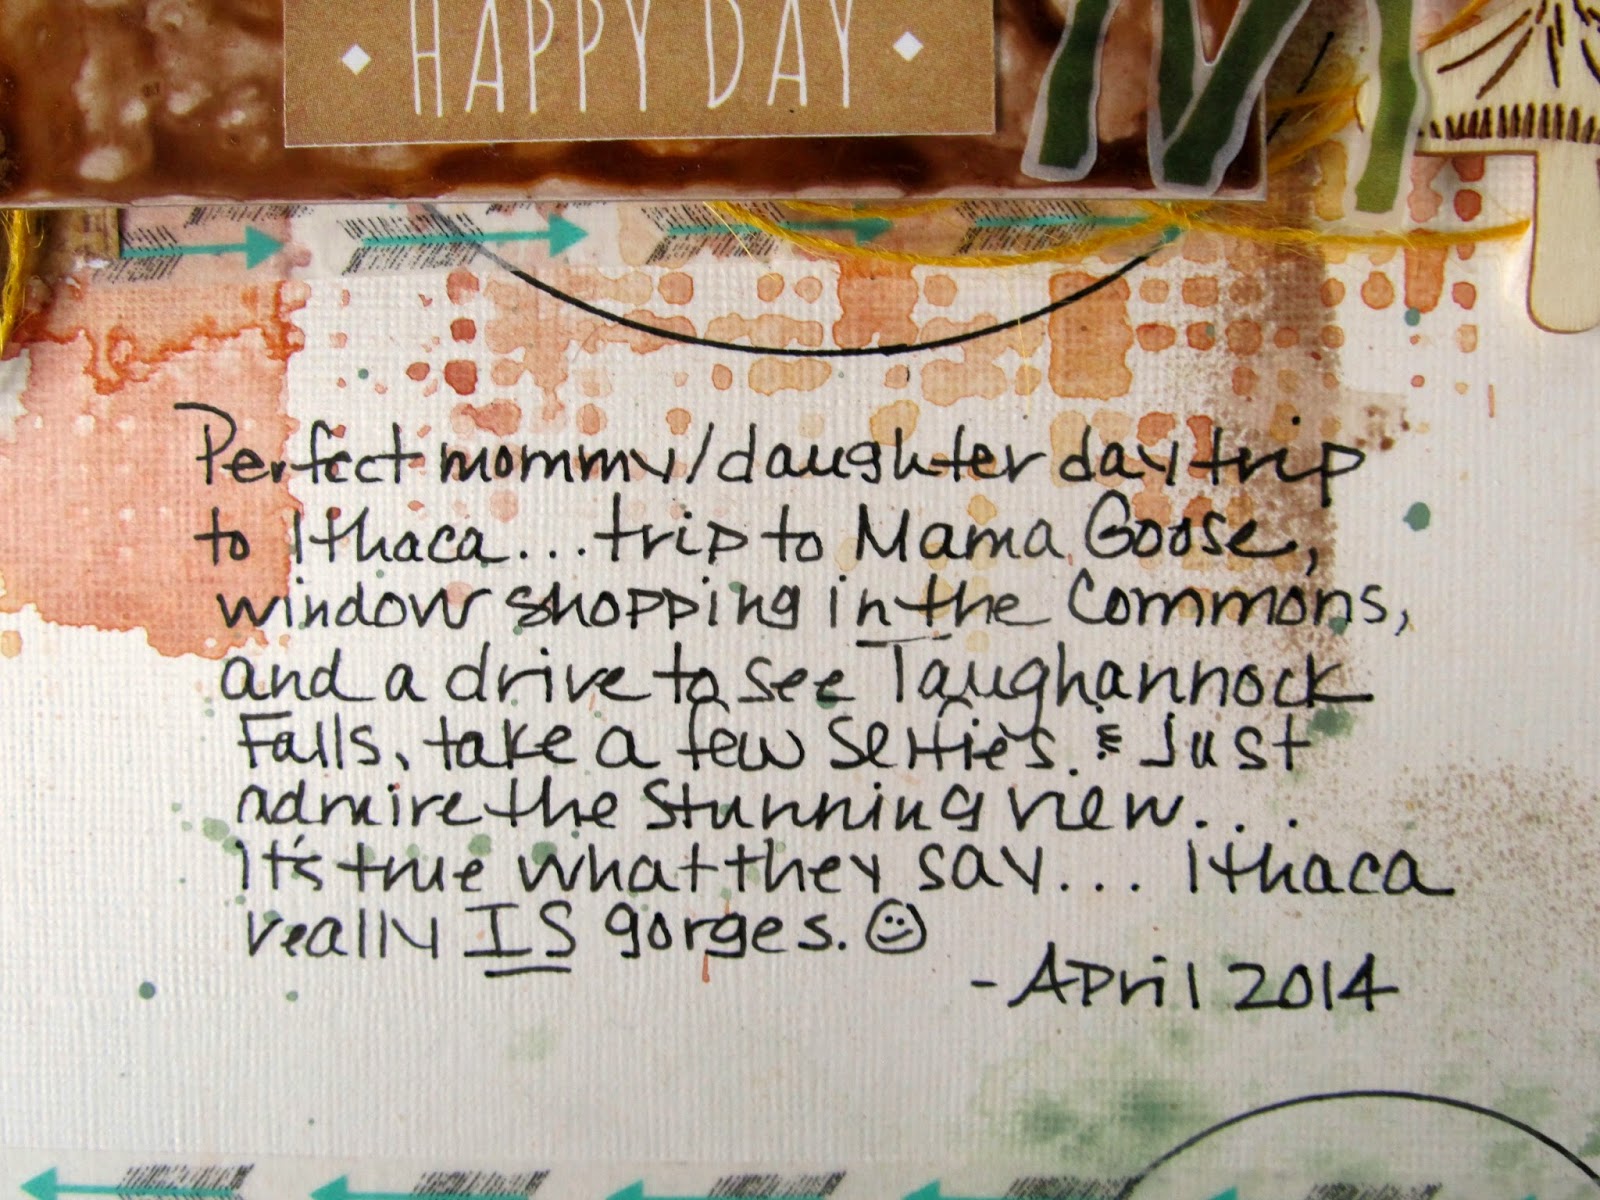 HAPPY DAY
Perfect mommy/daughter day trip
to Ithaca...trip to Mama Goose,
window shopping in the Commons,
and a drive to see Taughannock
Falls, take a few selfies. & Just
admire the stunning view...
It's true what they say... Ithaca
really IS gorges. ☺
-April 2014